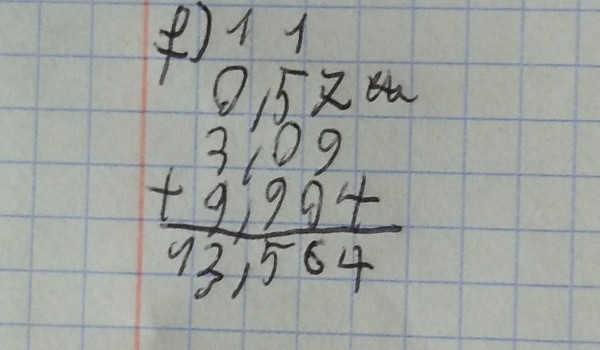 f) 1 1
0,57
3,09
+ 9,904
13,564